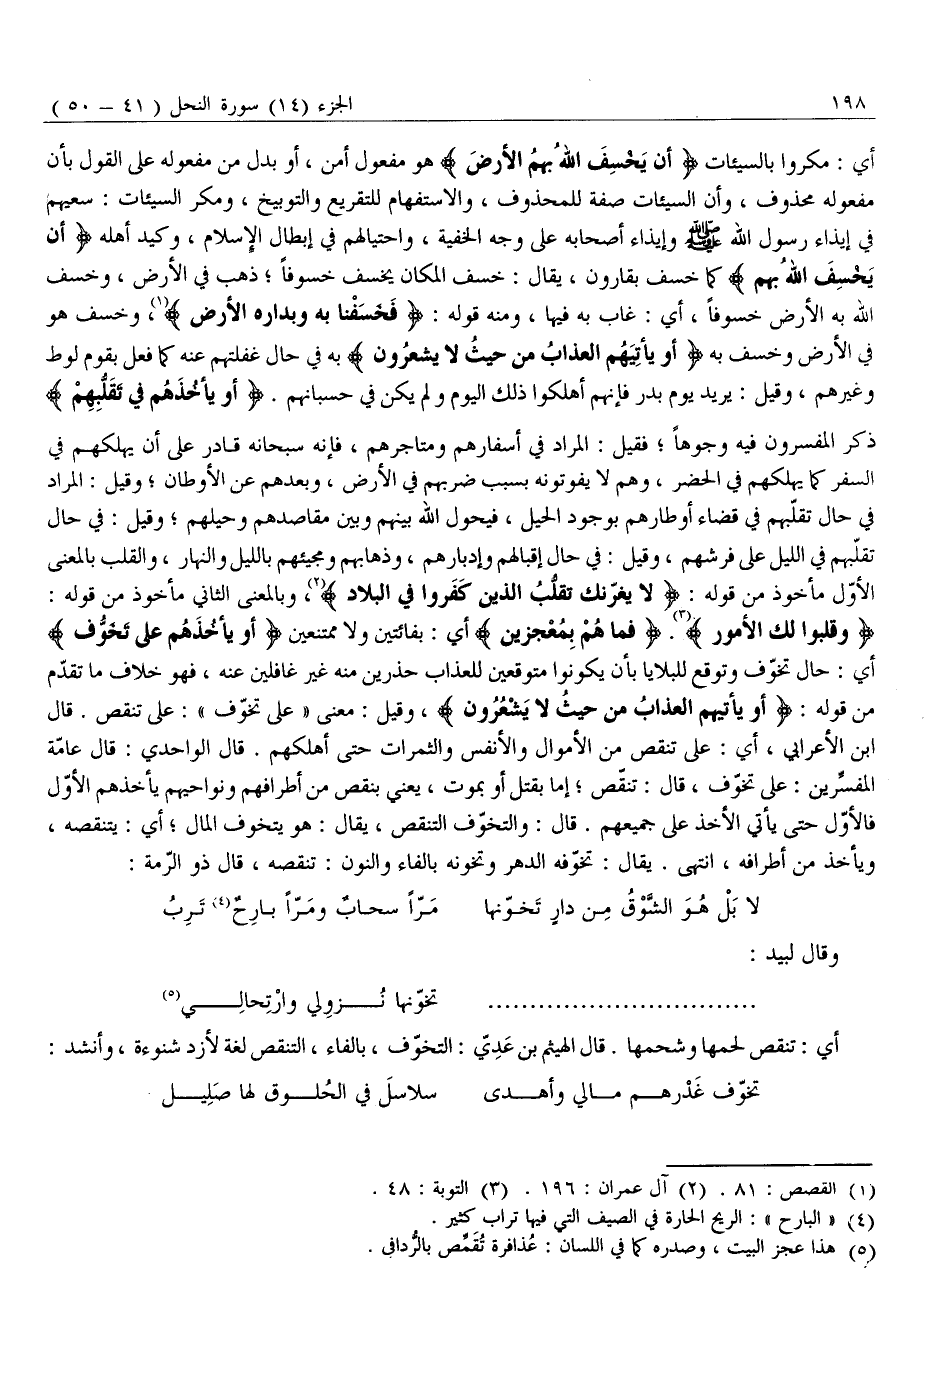 ١٩٨ الجزء (١٤) سورة النحل ( ٤١ – ٥٠ )
أي : مكروا بالسيئات ﴿ أن يَخْسِفَ اللهُ بهمُ الأرضَ ﴾ هو مفعول أمن ، أو بدل من مفعوله على القول بأن
مفعوله محذوف ، وأن السيئات صفة للمحذوف ، والاستفهام للتقريع والتوبيخ ، ومكر السيئات : سعيهم
في إيذاء رسول الله ﷺ وإيذاء أصحابه على وجه الخفية ، واحتيالهم في إبطال الإسلام ، وكيد أهله ﴿ أن
يَخْسِفَ اللهُ بهم ﴾ كما خسف بقارون ، يقال : خسف المكان يخسف خسوفاً ؛ ذهب في الأرض ، وخسف
الله به الأرض خسوفاً ، أي : غاب به فيها ، ومنه قوله : ﴿ فَخَسَفْنا به وبداره الأرض ﴾(١)، وخسف هو
في الأرض وخسف به ﴿ أو يأتِيَهُم العذابُ من حيثُ لا يشعرُون ﴾ به في حال غفلتهم عنه كما فعل بقوم لوط
وغيرهم ، وقيل : يريد يوم بدر فإنهم أهلكوا ذلك اليوم ولم يكن في حسبانهم . ﴿ أو يأخُذَهُم في تَقَلُّبِهِمْ ﴾
ذكر المفسرون فيه وجوهاً ؛ فقيل : المراد في أسفارهم ومتاجرهم ، فإنه سبحانه قادر على أن يهلكهم في
السفر كما يهلكهم في الحضر ، وهم لا يفوتونه بسبب ضربهم في الأرض ، وبعدهم عن الأوطان ؛ وقيل : المراد
في حال تقلّبهم في قضاء أوطارهم بوجود الحيل ، فيحول الله بينهم وبين مقاصدهم وحيلهم ؛ وقيل : في حال
تقلّبهم في الليل على فرشهم ، وقيل : في حال إقبالهم وإدبارهم ، وذهابهم ومجيئهم بالليل والنهار ، والقلب بالمعنى
الأوّل مأخوذ من قوله : ﴿ لا يغرّنك تقلبُ الذين كَفَروا في البلاد ﴾(٢)، وبالمعنى الثاني مأخوذ من قوله :
﴿ وقلبوا لك الأمور ﴾(٣). ﴿ فما هُمْ بِمُعْجزين ﴾ أي : بفائتين ولا ممتنعين ﴿ أو يأخُذَهُم على تَخَوُّف ﴾
أي : حال تخوّف وتوقع للبلايا بأن يكونوا متوقعين للعذاب حذرين منه غير غافلين عنه ، فهو خلاف ما تقدّم
من قوله : ﴿ أو يأتيهم العذابُ من حيثُ لا يَشْعُرُون ﴾ ، وقيل : معنى « على تخوّف » : على تنقص . قال
ابن الأعرابي ، أي : على تنقص من الأموال والأنفس والثمرات حتى أهلكهم . قال الواحدي : قال عامّة
المفسِّرين : على تخوّف ، قال : تنقّص ؛ إما بقتل أو بموت ، يعني بنقص من أطرافهم ونواحيهم يأخذهم الأوّل
فالأوّل حتى يأتي الأخذ على جميعهم . قال : والتخوّف التنقص ، يقال : هو يتخوف المال ؛ أي : يتنقصه ،
ويأخذ من أطرافه ، انتهى . يقال : تخوّفه الدهر وتخونه بالفاء والنون : تنقصه ، قال ذو الرّمة :
لا بَلْ هُوَ الشَّوْقُ مِن دارٍ تَخوّنها مَرّاً سحابٌ ومَرّاً بارِحٌ(٤) تَرِبُ
وقال لبيد :
................................ تخوّنها نُزولِي وارْتِحالِي(٥)
أي : تنقص لحمها وشحمها . قال الهيثم بن عَدِيّ : التخوّف ، بالفاء ، التنقص لغة لأزد شنوءة ، وأنشد :
تخوّف غَدْرهم مالي وأهدى سلاسلَ في الحُلوق لها صَلِيل
(١) القصص : ٨١ . (٢) آل عمران : ١٩٦ . (٣) التوبة : ٤٨ .
(٤) « البارح » : الريح الحارة في الصيف التي فيها تراب كثير .
(٥) هذا عجز البيت ، وصدره كما في اللسان : عُذافرة تُقَمِّص بالرُّدافى .